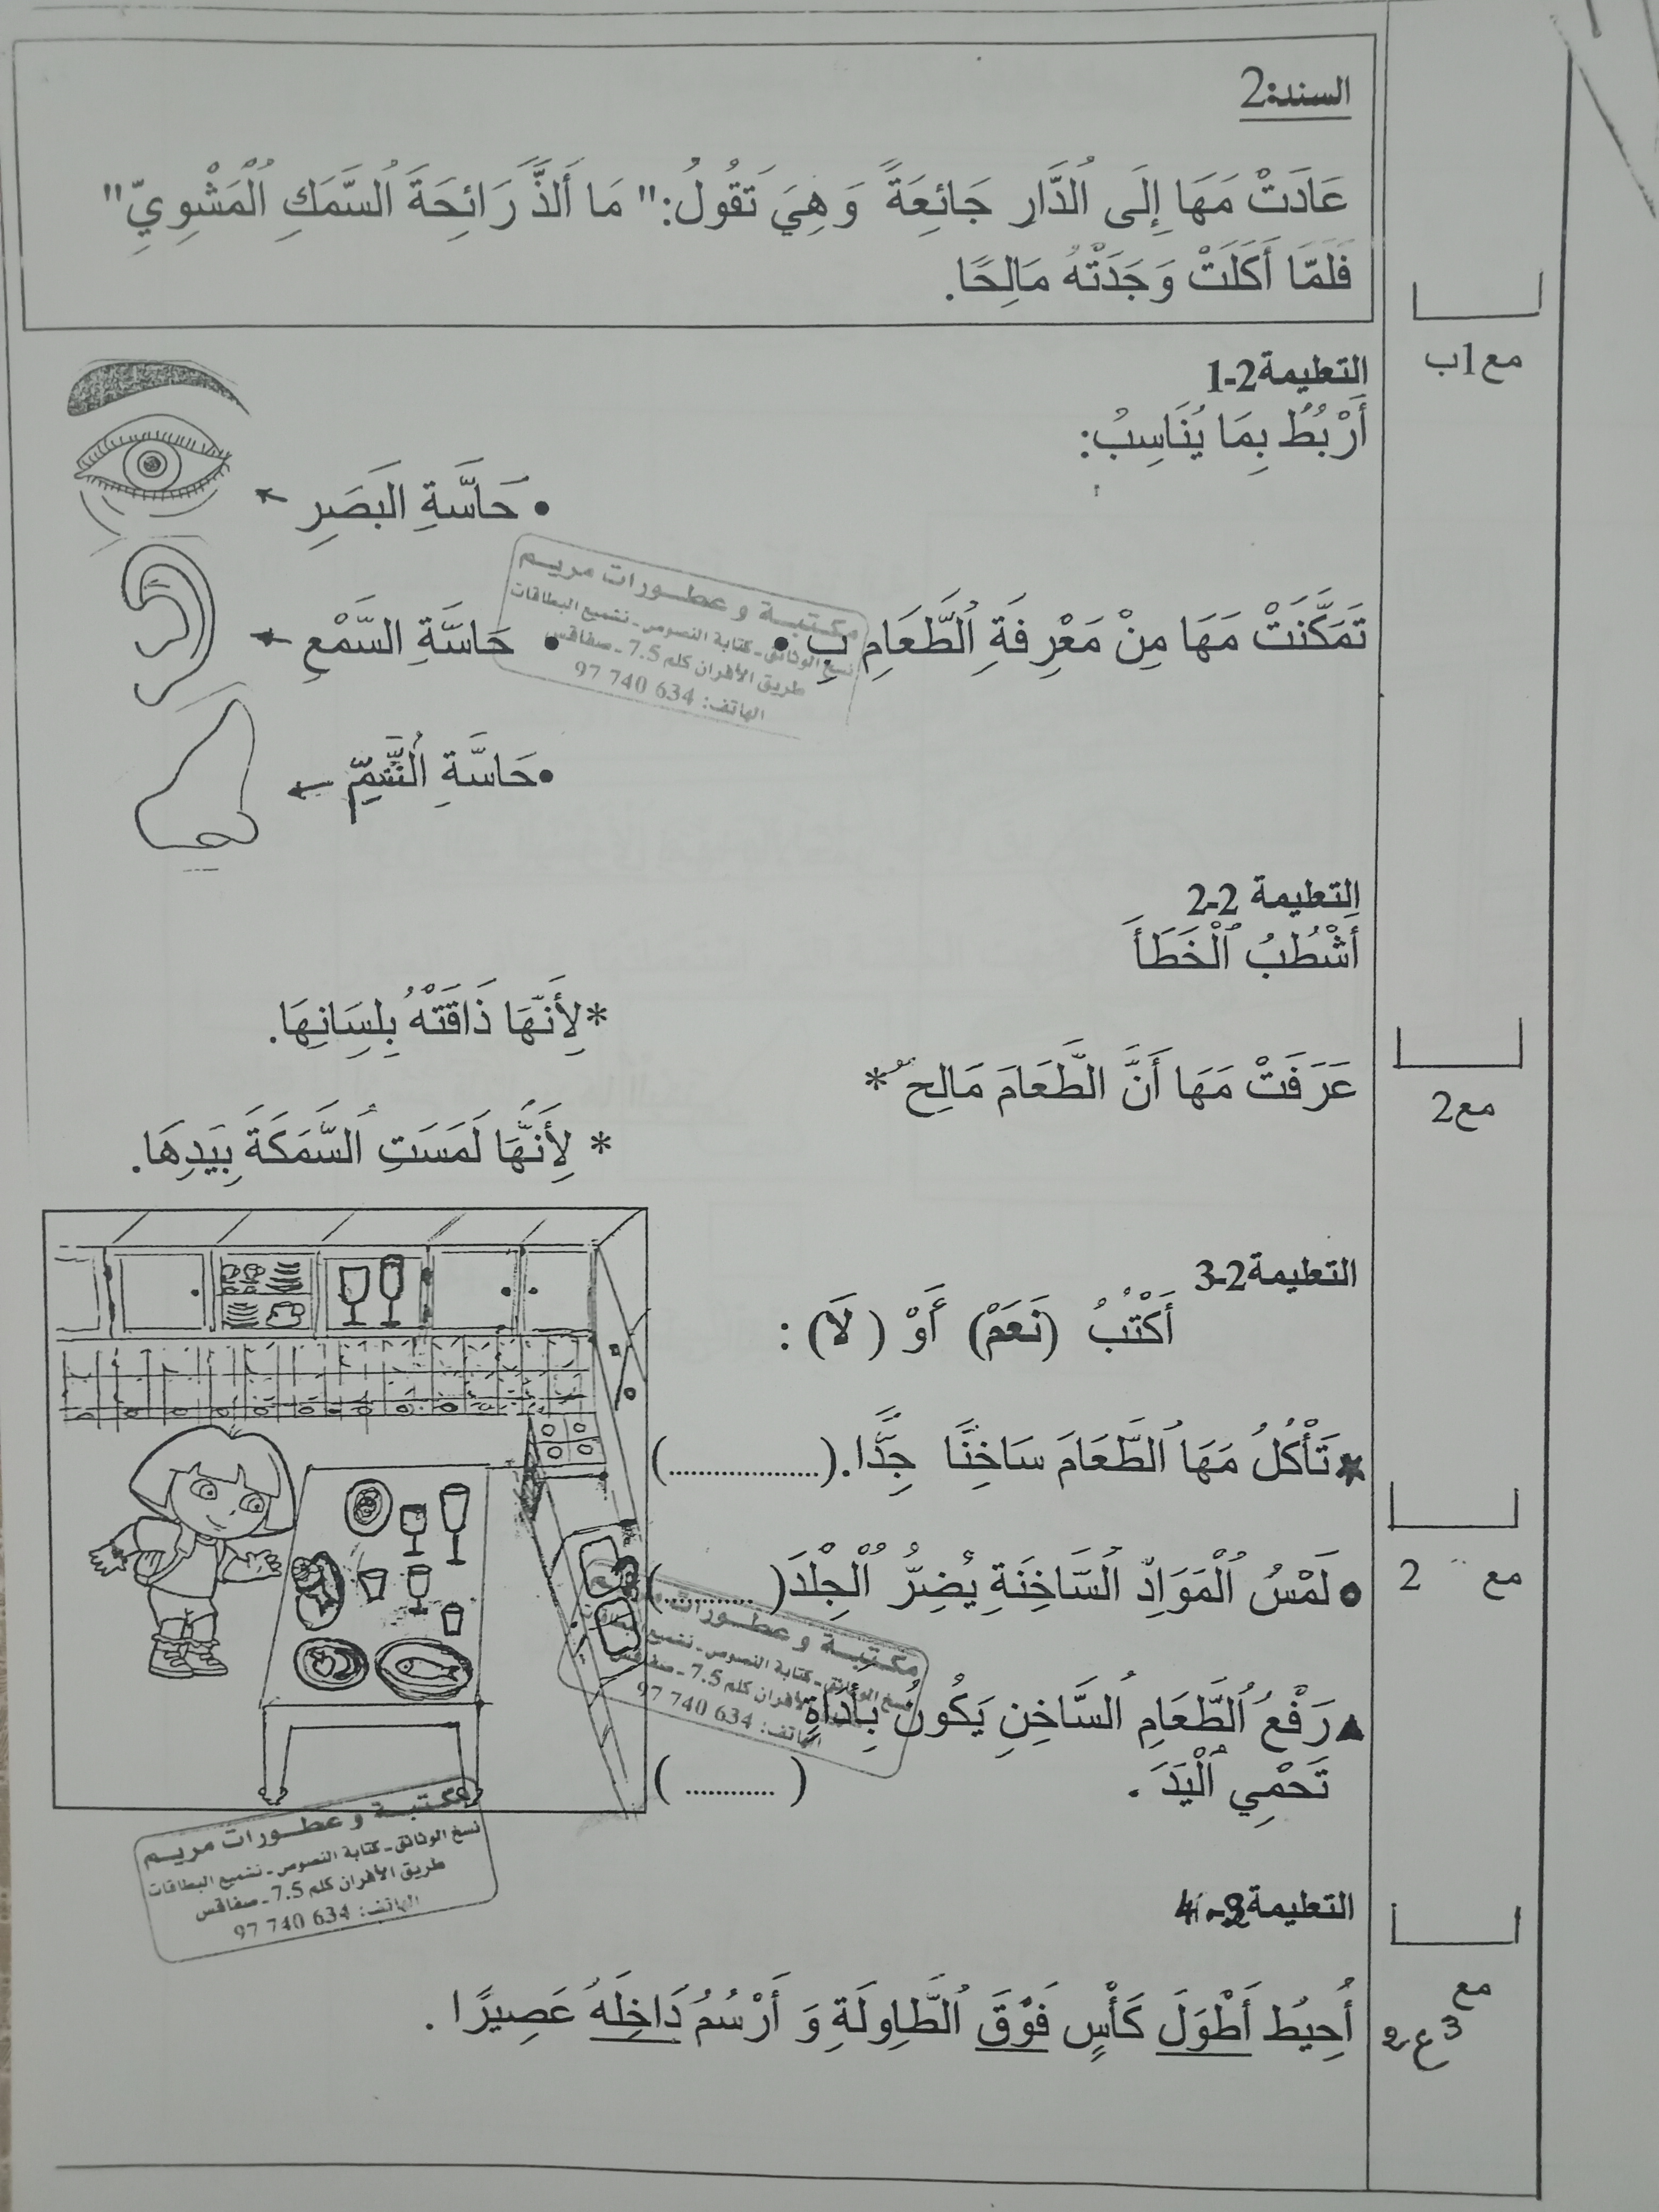 السند:2
عَادَتْ مَهَا إِلَى ٱلدَّارِ جَائِعَةً وَهِيَ تَقُولُ:" مَا أَلذَّ رَائِحَةَ ٱلسَّمَكِ ٱلْمَشْوِيِّ"
فَلَمَّا أَكَلَتْ وَجَدَتْهُ مَالِحًا.
مع1ب
التعليمة2-1
أَرْبُطُ بِمَا يُنَاسِبُ:
• حَاسَّةِ البَصَرِ
تَمَكَّنَتْ مَهَا مِنْ مَعْرِفَةِ ٱلطَّعَامِ بِ • • حَاسَّةِ السَّمْعِ
•حَاسَّةِ ٱلشَّمِّ
مكتبة و عطورات مريم
نسخ الوثائق - كتابة النصوص - تشميع البطاقات
طريق الأفران كلم 7.5 - صفاقس
الهاتف: 634 740 97
التعليمة 2-2
أَشْطُبُ ٱلْخَطَأَ
*لِأَنَّهَا ذَاقَتْهُ بِلِسَانِهَا.
عَرَفَتْ مَهَا أَنَّ الطَّعَامَ مَالِحٌ *
مع2
* لِأَنَّهَا لَمَسَتِ ٱلسَّمَكَةَ بِيَدِهَا.
التعليمة2-3
أَكْتُبُ (نَعَمْ) أَوْ (لَا) :
تَأْكُلُ مَهَا ٱلطَّعَامَ سَاخِنًا جِدًّا.(..................)
مع 2
لَمْسُ ٱلْمَوَادِّ ٱلسَّاخِنَةِ يُضِرُّ ٱلْجِلْدَ(............)
▲رَفْعُ ٱلطَّعَامِ ٱلسَّاخِنِ يَكُونُ بِأَدَاةٍ
تَحْمِي ٱلْيَدَ . (...........)
مكتبة و عطورات مريم
نسخ الوثائق - كتابة النصوص - تشميع البطاقات
طريق الأفران كلم 7.5 - صفاقس
الهاتف: 634 740 97
مكتبة و عطورات مريم
نسخ الوثائق - كتابة النصوص - تشميع البطاقات
طريق الأفران كلم 7.5 - صفاقس
الهاتف: 634 740 97
التعليمة2-4
مع
3
أُحِيطُ أَطْوَلَ كَأْسٍ فَوْقَ ٱلطَّاوِلَةِ وَ أَرْسُمُ دَاخِلَهُ عَصِيرًا .